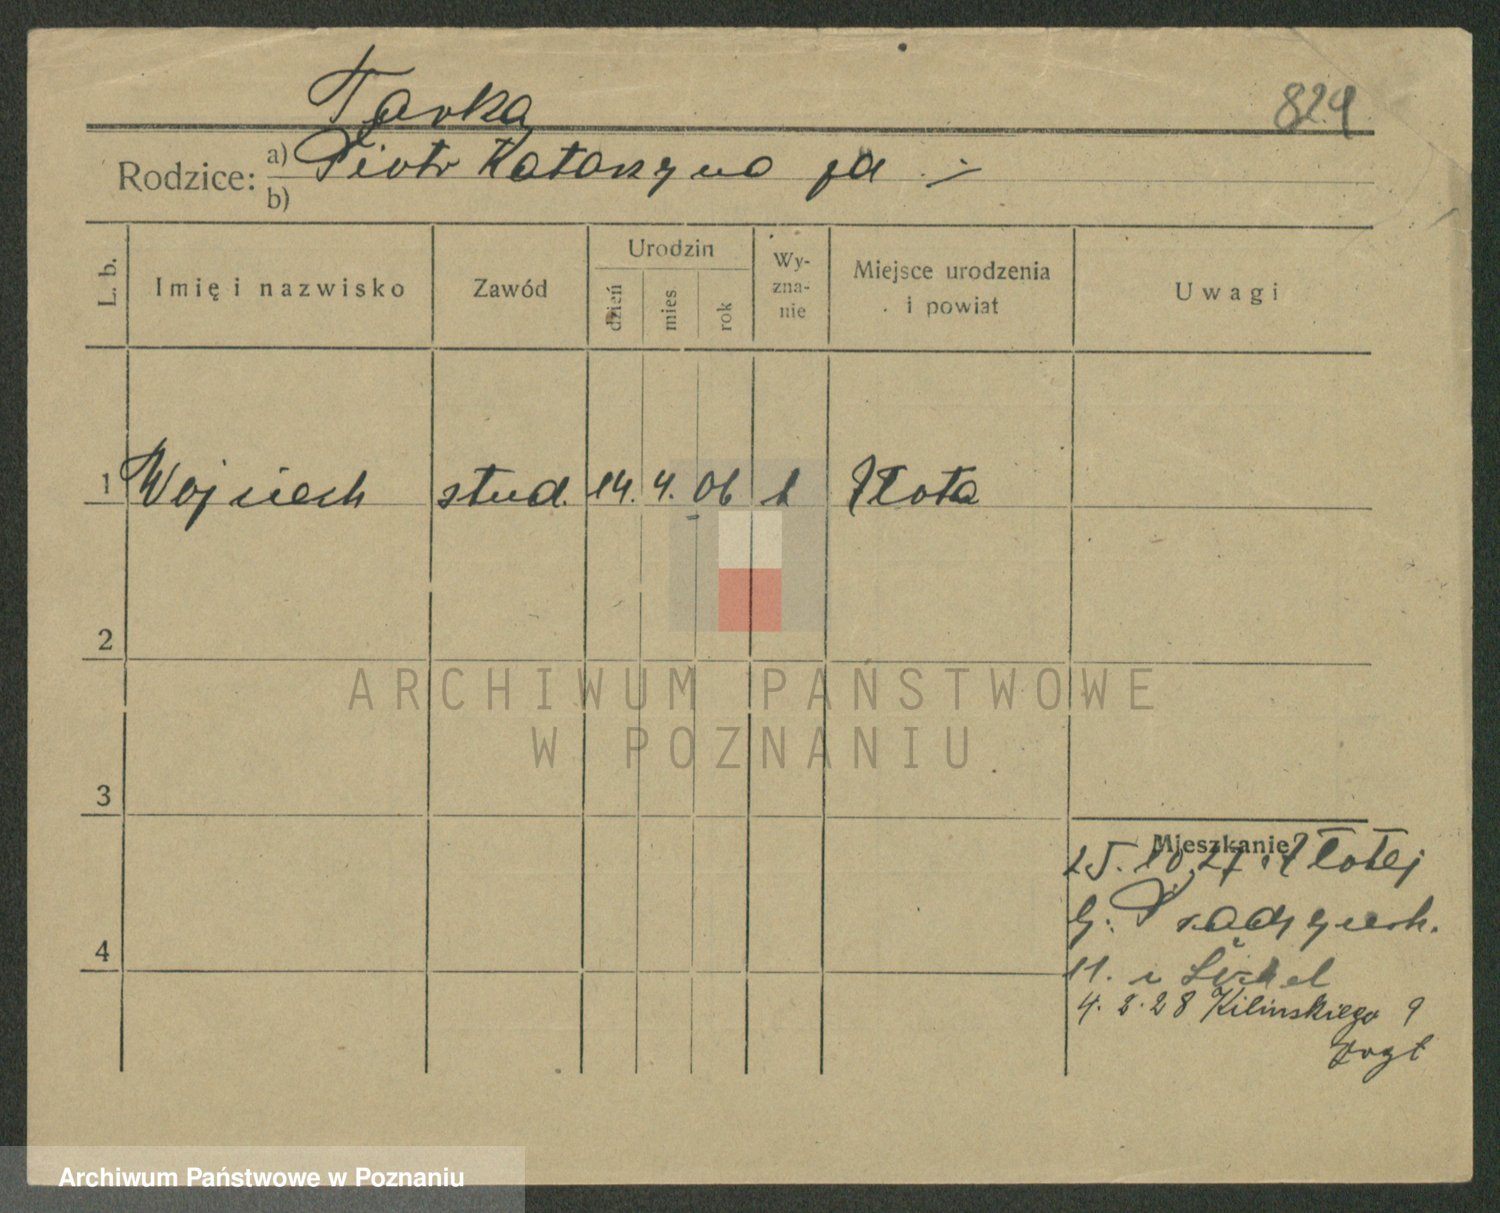 829
Tarka
Rodzice: a) Piotr Katarzyna
b)
L. b. Imię i nazwisko Zawód Urodzin dzień mies rok Wyznanie Miejsce urodzenia i powiat Uwagi
1 Wojciech stud. 14. 4. 06 k Złota
2
3
4
Mieszkanie
25. 10. 27. z Złotej
11. u
4. 2. 28 Kilinskiego 9
ARCHIWUM PAŃSTWOWE
W POZNANIU
Archiwum Państwowe w Poznaniu